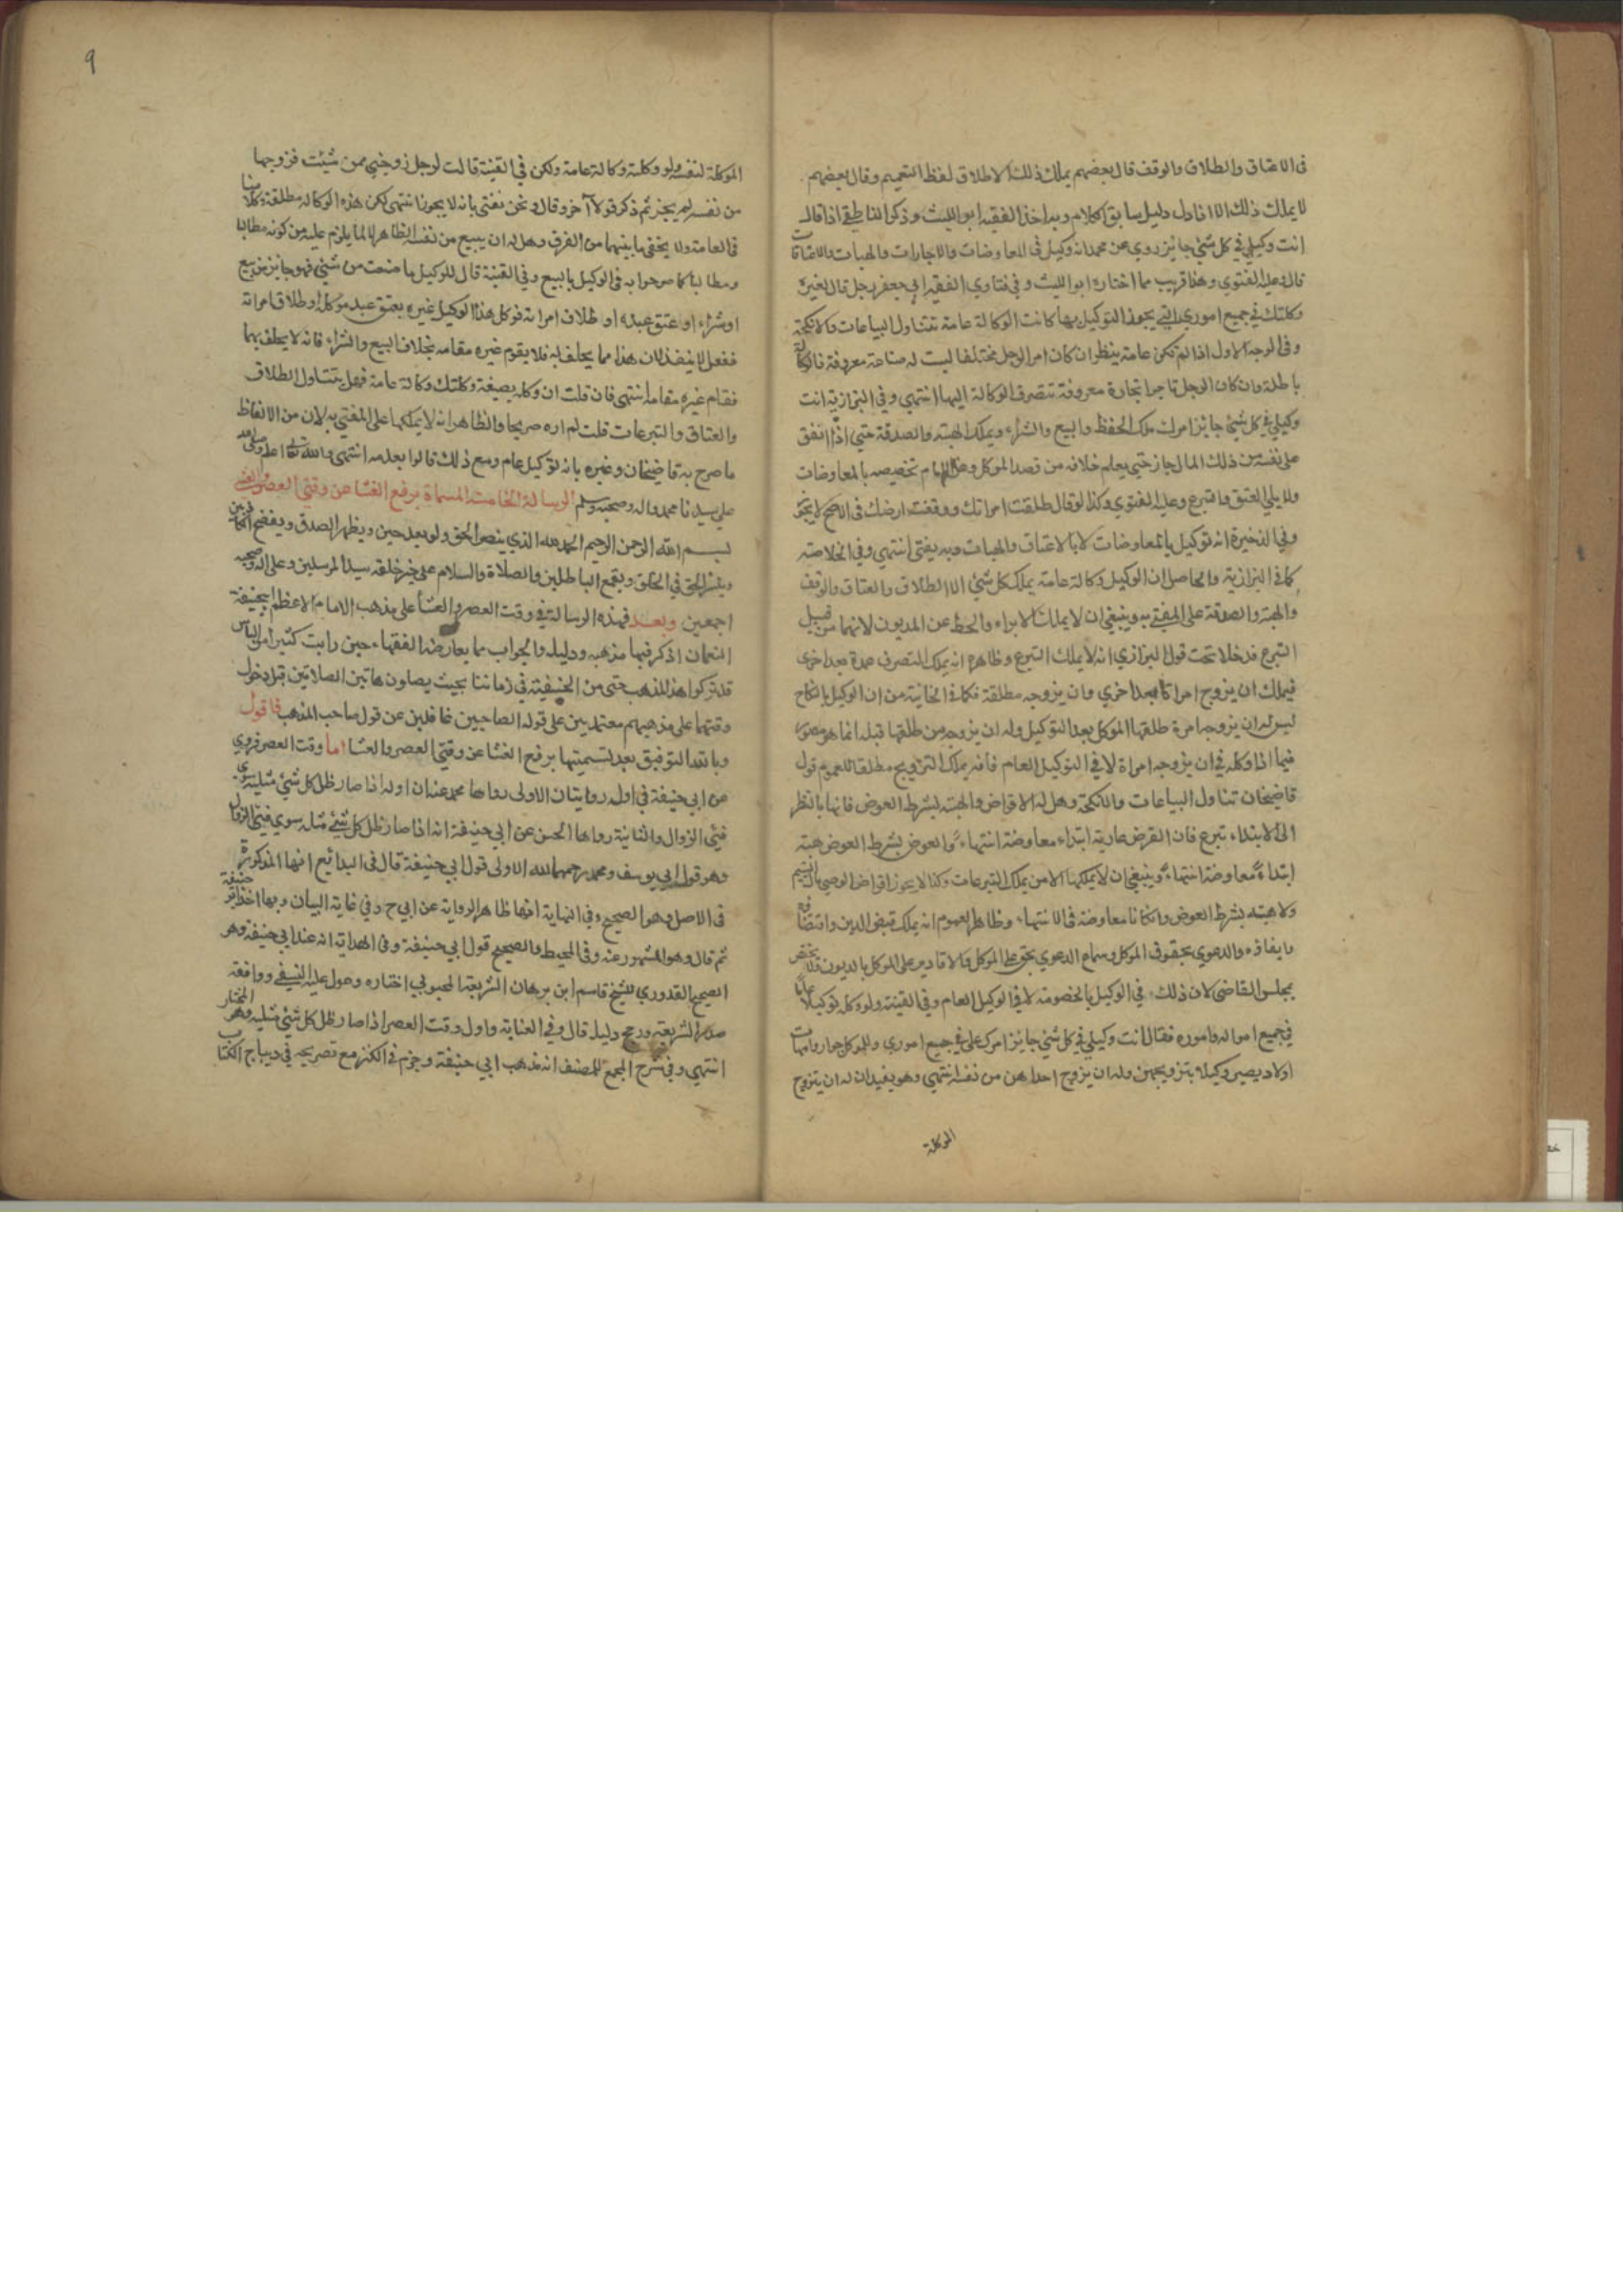 فى الاعتاق والطلاق والوقف قال بعضهم يملك ذلك لاطلاق لفظ التعميم وقال بعضهم
لا يملك ذلك الا اذا دل دليل سابق الكلام وبه اخذ الفقيه ابو الليث وذكر الناطفي اذا قال
انت وكيلي في كل شئ جائز روي عن محمد انه وكيل في المعاوضات والاجارات والهبات والاعتاقات
قال وعليه الفتوي وهذا قريب مما اختاره ابو الليث وفي فتاوي الفقيه ابي جعفر رجل قال لغيره
وكلتك في جميع اموري التي يجوز التوكيل بها كانت الوكالة عامة تتناول البياعات والانكحة
وفى الوجه الاول اذا لم تكن عامة ينظر ان كان امر الرجل مختلفا ليست له صناعة معروفة فالوكالة
باطلة وان كان الرجل تاجرا تجارة معروفة تنصرف الوكالة اليها انتهى وفي البزازية انت
وكيلي في كل شئ جائز امرك ملك الحفظ والبيع والشراء ويملك الهبة والصدقة حتي اذا انفق
على نفسه من ذلك المال جاز حتي يعلم خلافه من قصد الموكل وعن الامام تخصيصه بالمعاوضات
ولا يلي العتق والتبرع وعليه الفتوي وكذا لو قال طلقت امراتك ووقفت ارضك فى الاصح لا يجوز
وفي الذخيرة انه توكيل بالمعاوضات لا بالاعتاق والهبات وبه يفتى انتهي وفي الخلاصة
كما في البزازية والحاصل ان الوكيل وكالة عامة يملك كل شئ الا الطلاق والعتاق والوقف
والهبة والصدقة على المفتى به وينبغي ان لا يملك الابراء والحط عن المديون لانهما من قبيل
التبرع فدخلا تحت قول البزازي انه لا يملك التبرع وظاهره انه يملك التصرف مرة بعد اخرى
فيملك ان يزوج امراة بعد اخري وان يزوجه مطلقة فكما في الخانية من ان الوكيل بالنكاح
ليس له ان يزوجه امرة طلقها الموكل بعد التوكيل وله ان يزوجه من طلقها قبله انما هو مصور
فيما اذا وكله في ان يزوجه امراة لا في التوكيل العام فانه يملك التزويج مطلقا للعموم قول
قاضيخان تتناول البياعات والانكحة وهل له الاقراض والهبة بشرط العوض فانها بالنظر
الى الابتداء تبرع فان القرض عارية ابتداء معاوضة انتهاء والعوض بشرط العوض هبة
ابتداء معاوضة انتهاء وينبغي ان لا يملكها الا من يملك التبرعات وكذا لا يجوز اقراض الوصي مال اليتيم
ولا هبته بشرط العوض وان كانا معاوضة في الانتهاء وظاهر العموم انه يملك قبض الدين واقتضاه
وايفاؤه والدعوي بحقوق الموكل وسماع الدعوي بحق على الموكل والاقارير على الموكل بالديون ولا يختص
بمجلس القاضى لان ذلك في الوكيل بالخصومة لا في الوكيل العام وفي القنية ولو وكله توكيلا عاما
في جميع امواله واموره فقال انت وكيلي في كل شئ جائز امرك على في جميع اموري وللموكل جوار وامهات
اولاد يصير وكيلا بتزويجهن وله ان يزوج احداهن من نفسه انتهى وهو يفيد ان له ان يتزوج
الموكلة
٩
الموكلة لنفسه ولو وكلته وكالة عامة ولكن في القنية قالت لرجل زوجني ممن شئت فزوجها
من نفسه لم يجز ثم ذكر قولا آخر وقال ونحن نفتى بانه لا يجوز انتهى لكن هذه الوكالة مطلقة وكلامنا
في العامة ولا يخفى ما بينهما من الفرق وهل له ان يبيع من نفسه الظاهر لا لما يلزم عليه من كونه مطالبا
ومطالبا كما صرحوا به فى الوكيل بالبيع وفي القنية قال للوكيل ما صنعت من شئ فهو جائز من بيع
او شراء او عتق عبده او طلاق امراته فوكل هذا الوكيل غيره بعتق عبد موكله او طلاق امراته
ففعل لا ينفذ لان هذا مما يحلف به فلا يقوم غيره مقامه بخلاف البيع والشراء فانه لا يحلف بهما
فقام غيره مقامه انتهى فان قلت ان وكله بصيغة وكلتك وكالة عامة فهل يتناول الطلاق
والعتاق والتبرعات قلت لم اره صريحا والظاهر انه لا يملكها على المفتي به لان من الالفاظ
ما صرح به قاضيخان وغيره بانه توكيل عام ومع ذلك قالوا بعدمه انتهى والله تعالى اعلم وصلى الله
على سيدنا محمد واله وصحبه وسلم الرسالة الخامسة المسماة برفع الغشا عن وقتي العصر والعشا
بسم الله الرحمن الرحيم الحمد لله الذي ينصر الحق ولو بعد حين ويظهر الصدق ويفضح الكاذبين
وينشر الحق في الخلق ويقمع الباطلين والصلاة والسلام على خير خلقه سيد المرسلين وعلى اله وصحبه
اجمعين وبعد فهذه الرسالة في وقت العصر والعشا على مذهب الامام الاعظم ابي حنيفة
النعمان اذكر فيها مذهبه ودليله والجواب مما يعارضه الفقهاء حين رايت كثيرا من الناس
قد تركوا هذا المذهب حتى من الحنفية في زماننا بحيث يصلون هاتين الصلاتين قبل دخول
وقتهما على مذهبهم معتمدين على قوله الصاحبين غافلين عن قول صاحب المذهب فاقول
وبالله التوفيق بعد تسميتها برفع الغشا عن وقتي العصر والعشا اما وقت العصر فروي
عن ابي حنيفة في اوله روايتان الاولى رواها محمد عنه ان اوله اذا صار ظل كل شئ مثليه سوى
فئ الزوال والثانية رواها الحسن عن ابي حنيفة انه اذا صار ظل كل شئ مثله سوي فئ الزوال
وهو قول ابي يوسف ومحمد رحمهما الله الاولى قول ابي حنيفة قال فى البدائع انها المذكورة
فى الاصل وهو الصحيح وفي النهاية انها ظاهر الرواية عن ابي ح وفي غاية البيان وبها اخذ ابو حنيفة
ثم قال وهو المشهور عنه وفى المحيط والصحيح قول ابي حنيفة وفى الهداية انه عند ابي حنيفة وهو
الصحيح القدوري للشيخ قاسم ابن برهان الشريعة المحبوبي اختاره وعول عليه النسفى ووافقه
صدر الشريعة ورجح دليله قال وفي العناية واول وقت العصر اذا صار ظل كل شئ مثليه وهو المختار
انتهي وفي شرح المجمع للمصنف انه مذهب ابي حنيفة وجزم فى الكنز مع تصريحه في ديباج الكتاب